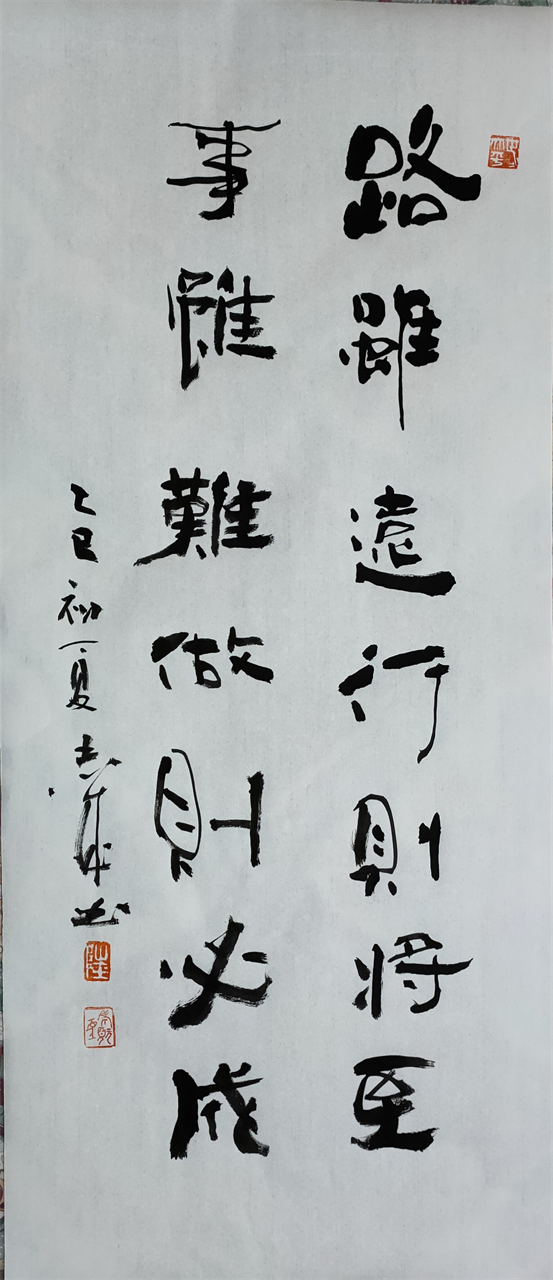 路雖遠行則將至
事雖難做則必成
乙巳初夏志成书
陸